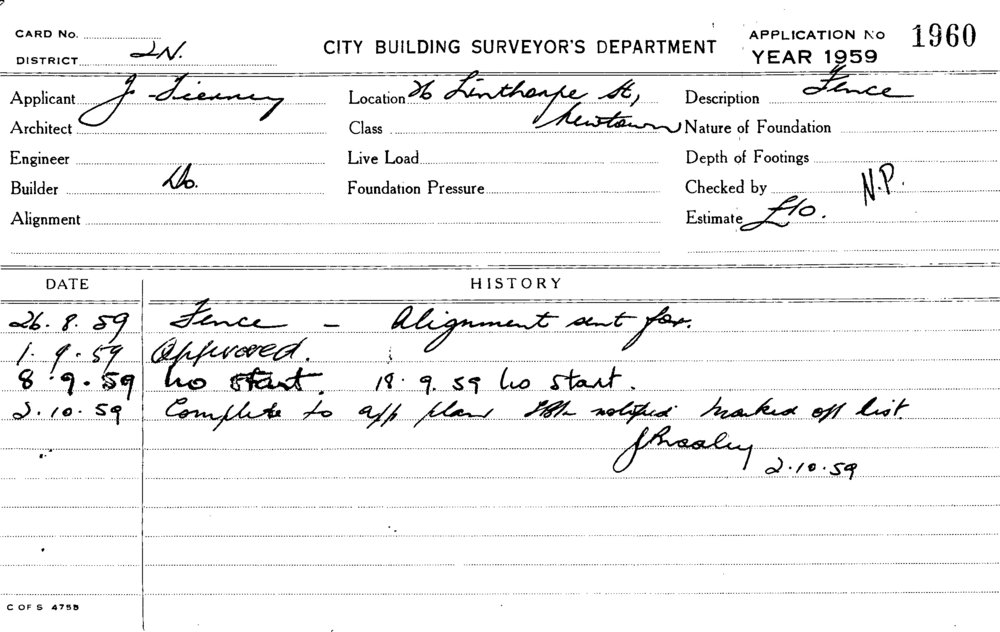 CARD No.
DISTRICT 2N.
CITY BUILDING SURVEYOR'S DEPARTMENT
APPLICATION No 1960
YEAR 1959
Applicant J Tierney Location 26 Linthorpe St, Description Fence
Architect Class Newtown Nature of Foundation
Engineer Live Load Depth of Footings
Builder Do. Foundation Pressure Checked by N.P.
Alignment Estimate £10.
DATE HISTORY
26.8.59 Fence - Alignment sent for.
1.9.59 Approved.
8.9.59 No start. 18.9.59 No start.
2.10.59 Complete to app plan notified marked off list.
2.10.59
C OF S 475B